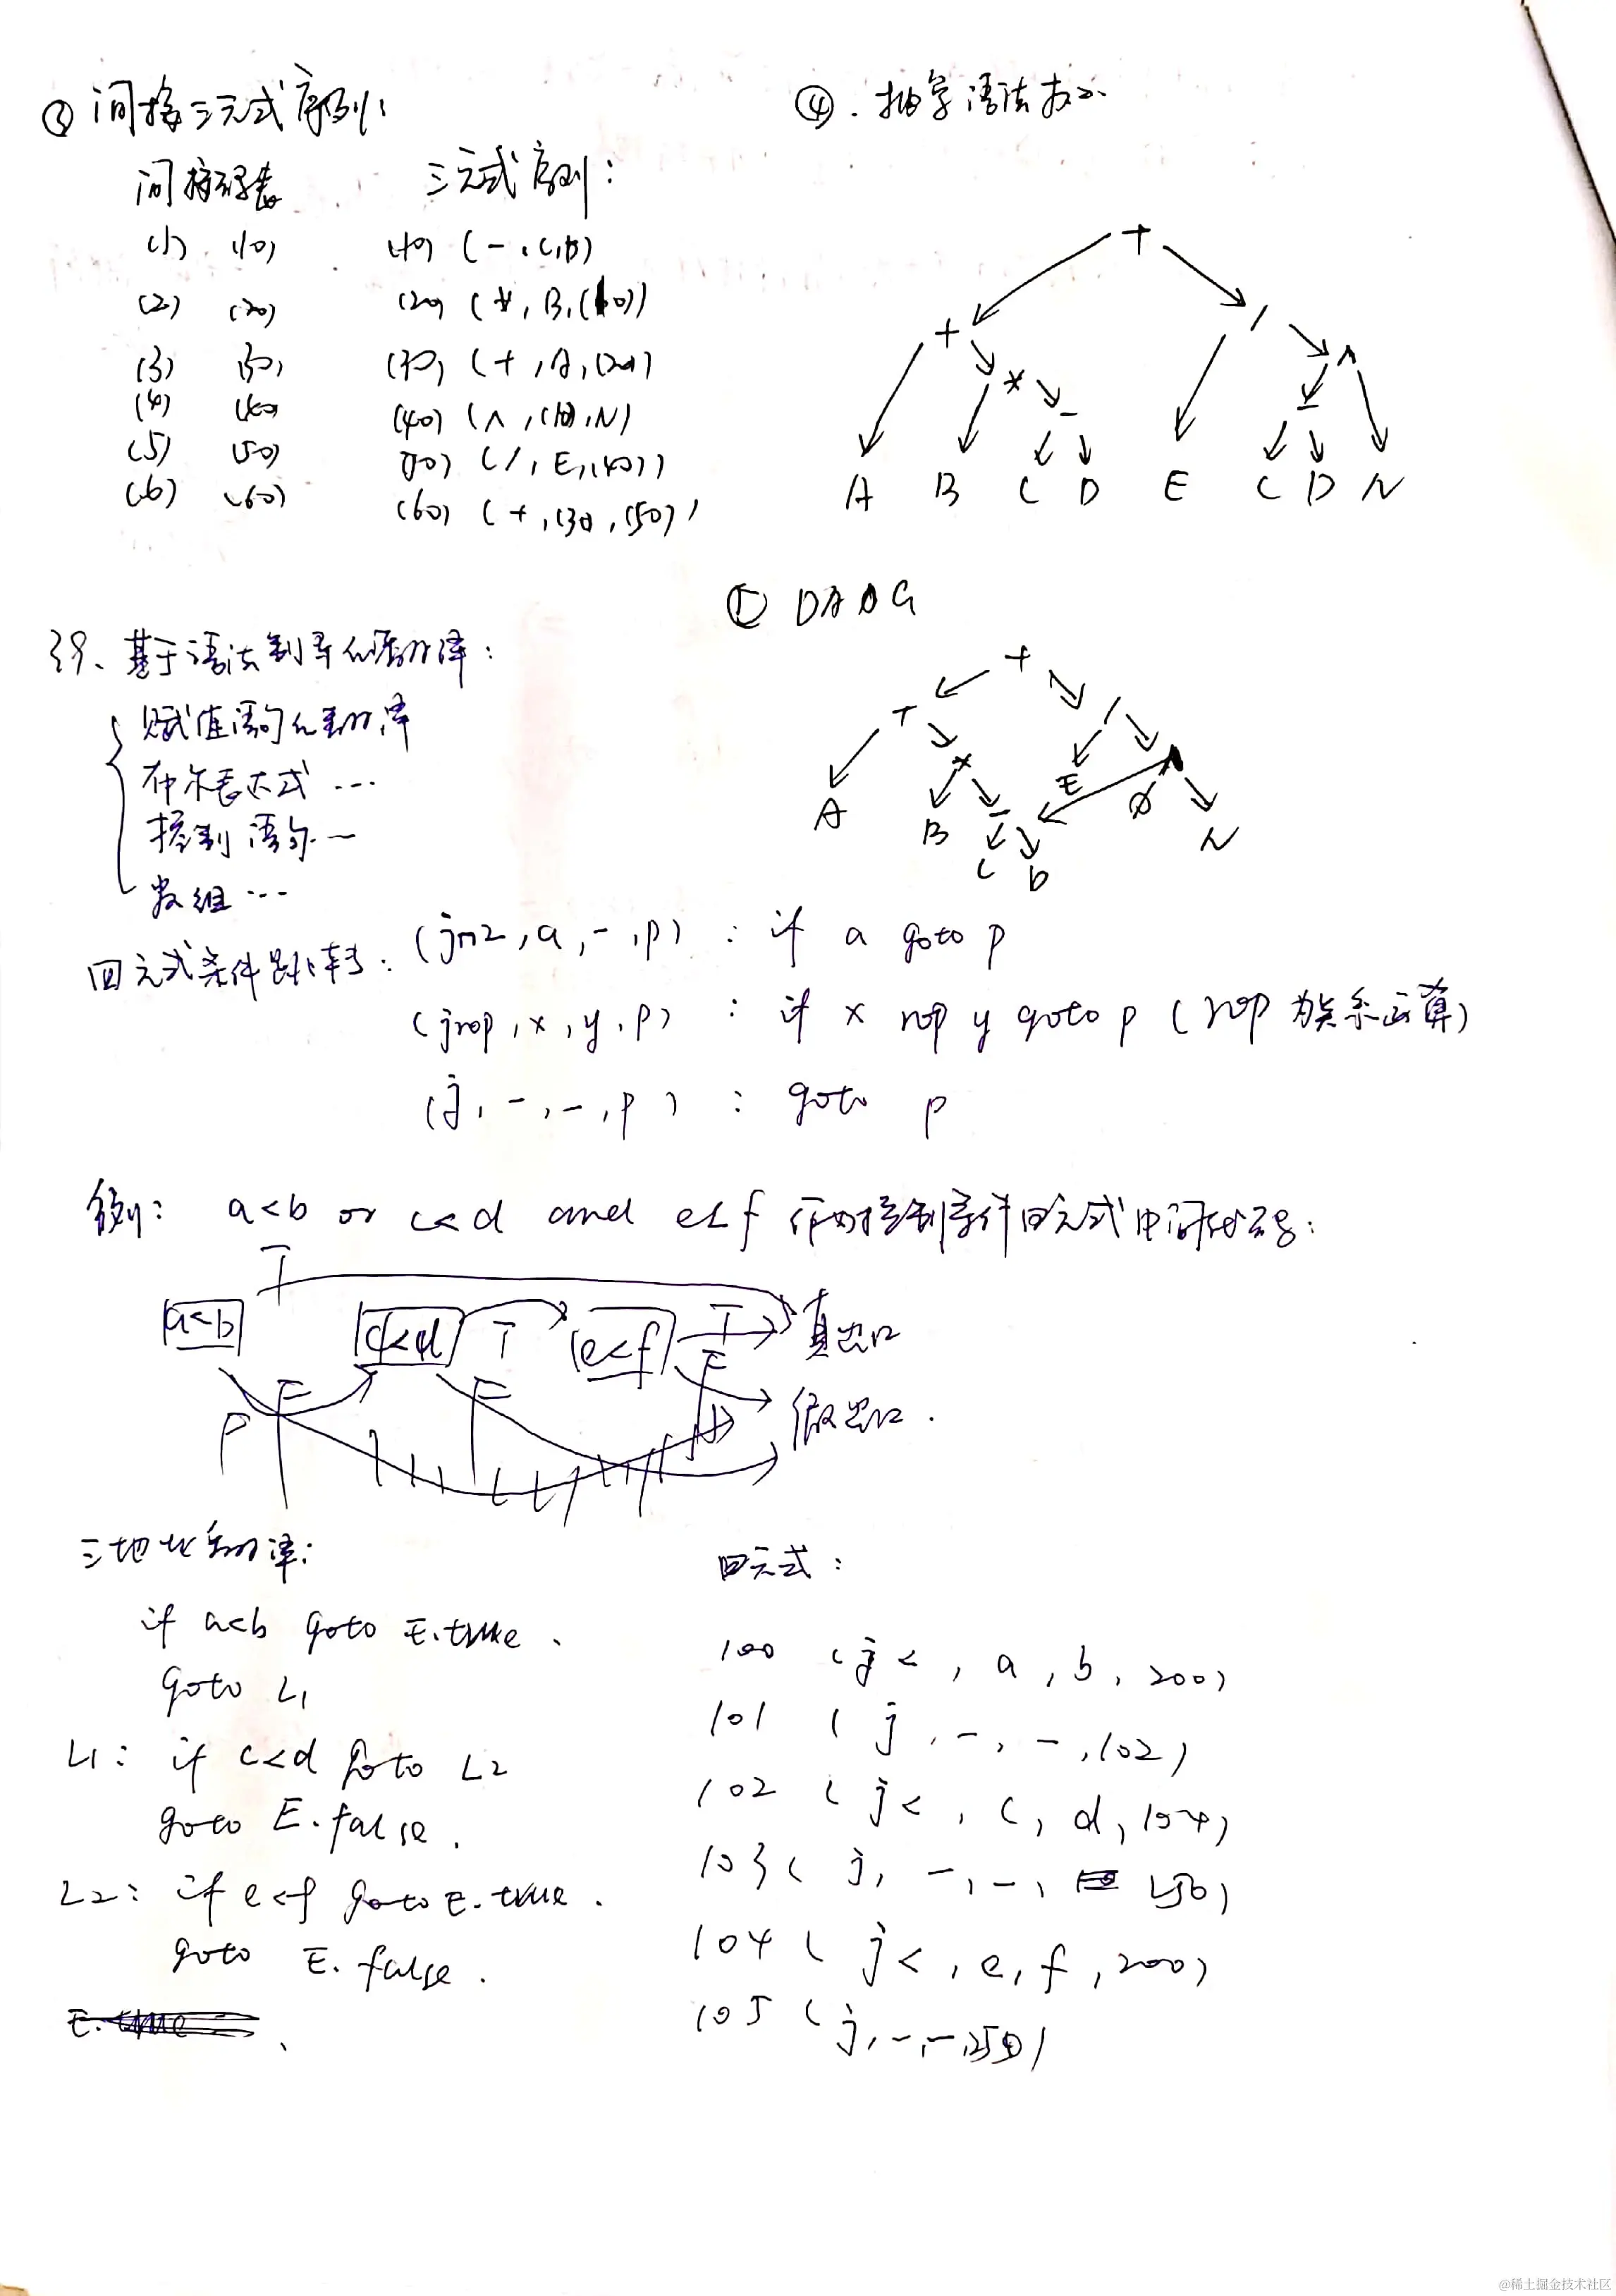 ③ 间接三元式序列:
间接码表 三元式序列:
(1) (10) (10) (-, C, D)
(2) (20) (20) (*, B, (10))
(3) (30) (30) (+, A, (20))
(4) (40) (40) (∧, (10), N)
(5) (50) (50) (/, E, (40))
(6) (60) (60) (+, (30), (50))
④. 抽象语法树
+
+ /
* ∧
- -
A B C D E C D N
⑤ DAG
+
+ /
* E
A B - N
C D
39、基于语法制导的语义翻译:
赋值语句的翻译
布尔表达式 …
控制语句 …
数组 …
四元式条件跳转: (jnz, a, -, p) : if a goto p
(jrop, x, y, p) : if x rop y goto p (rop 为关系运算)
(j, -, -, p) : goto p
例: a<b or c<d and e<f 作为控制条件四元式中间代码:
T
a<b c<d T e<f T 真出口
F F F 假出口.
三地址翻译:
if a<b goto E.true.
goto L1
L1: if c<d goto L2
goto E.false.
L2: if e<f goto E.true.
goto E.false.
四元式:
100 (j<, a, b, 200)
101 (j, -, -, 102)
102 (j<, c, d, 104)
103 (j, -, -, 250)
104 (j<, e, f, 200)
105 (j, -, -, 250)
@稀土掘金技术社区